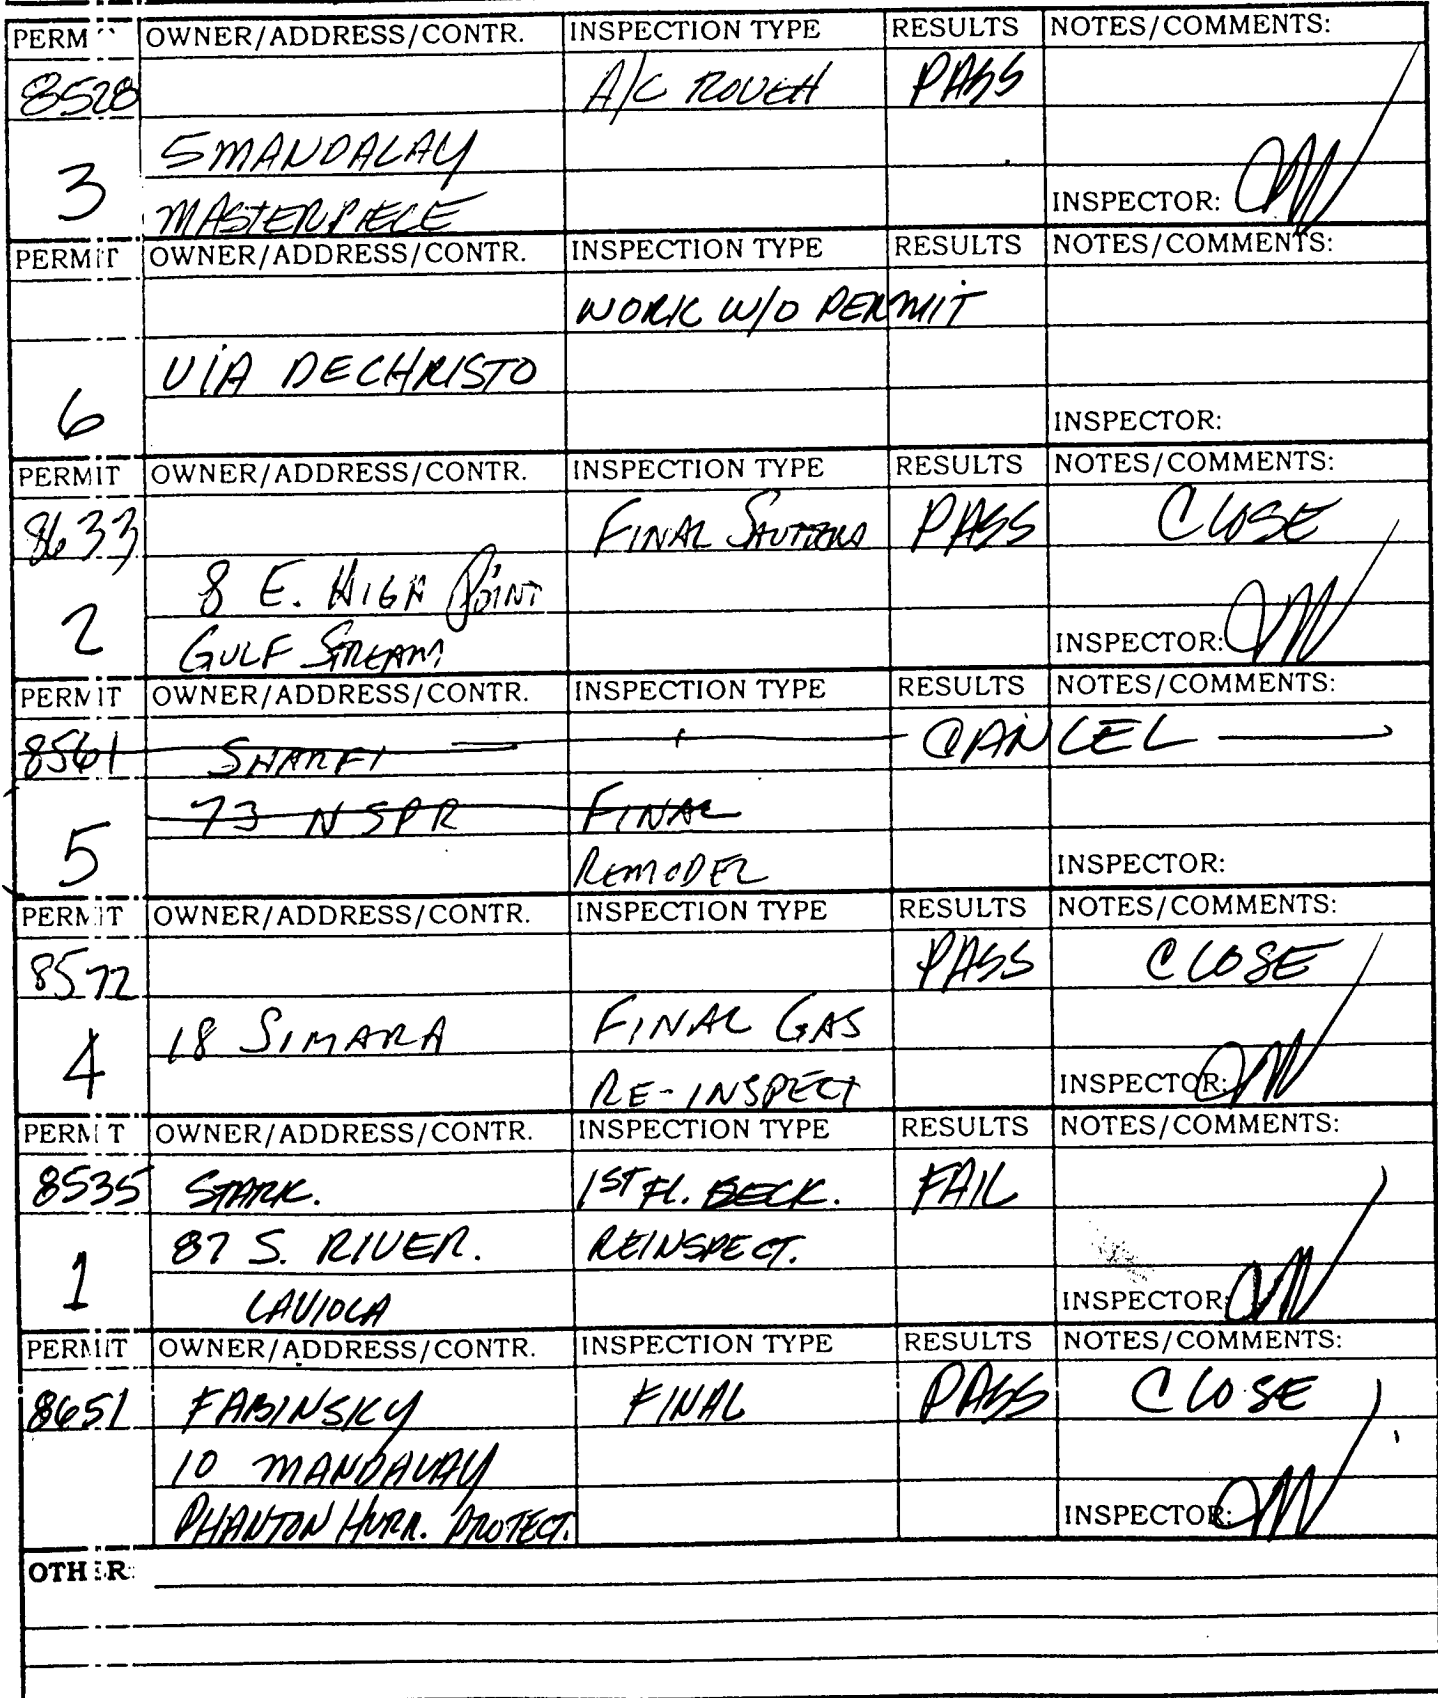 PERM OWNER/ADDRESS/CONTR. INSPECTION TYPE RESULTS NOTES/COMMENTS:
8528 A/C ROUGH PASS
5 MANDALAY
3 MASTERPIECE INSPECTOR:
PERMIT OWNER/ADDRESS/CONTR. INSPECTION TYPE RESULTS NOTES/COMMENTS:
WORK W/O PERMIT
VIA DECHRISTO
6 INSPECTOR:
PERMIT OWNER/ADDRESS/CONTR. INSPECTION TYPE RESULTS NOTES/COMMENTS:
8633 FINAL SHUTTERS PASS CLOSE
8 E. HIGH POINT
2 GULF STREAM INSPECTOR:
PERMIT OWNER/ADDRESS/CONTR. INSPECTION TYPE RESULTS NOTES/COMMENTS:
8561 SHARFI CANCEL
73 N SPR FINAL
5 REMODEL INSPECTOR:
PERMIT OWNER/ADDRESS/CONTR. INSPECTION TYPE RESULTS NOTES/COMMENTS:
8572 PASS CLOSE
18 SIMARA FINAL GAS
4 RE-INSPECT INSPECTOR:
PERMIT OWNER/ADDRESS/CONTR. INSPECTION TYPE RESULTS NOTES/COMMENTS:
8535 STARK. 1ST FL. BECK. FAIL
87 S. RIVER. REINSPECT.
1 LAVIOLA INSPECTOR:
PERMIT OWNER/ADDRESS/CONTR. INSPECTION TYPE RESULTS NOTES/COMMENTS:
8651 FABINSKY FINAL PASS CLOSE
10 MANDALAY
PHANTON HURR. PROTECT. INSPECTOR:
OTHER: